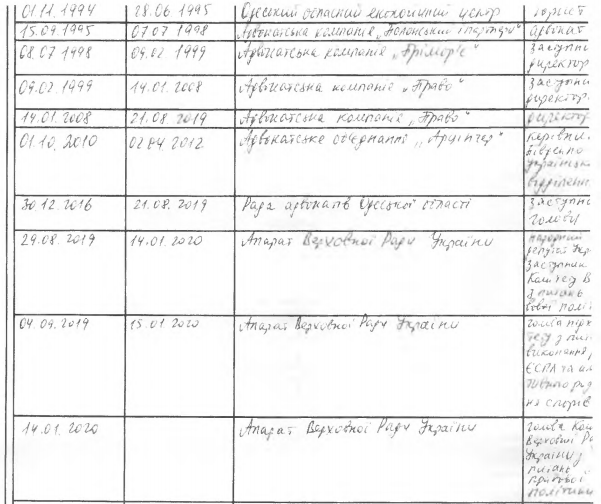 01.11.1994 28.06.1995 Одеський обласний економічний центр юрист
15.09.1995 07.07.1998 Адвокатська компанія „ і партнери“ адвокат
08.07.1998 09.02.1999 Адвокатська компанія „Примор'є“ заступни
директор
09.02.1999 14.01.2008 Адвокатська компанія „Право“ заступни
директор
14.01.2008 21.08.2019 Адвокатська компанія „Право“ директор
01.10.2010 02.04.2012 Адвокатське об'єднання керівни
українськ
відділенн
30.12.2016 21.08.2019 Рада адвокатів Одеської області заступн
голови
29.08.2019 14.01.2020 Апарат Верховної Ради України народний
депутат Укр
заступник
Комітету В
з питань
вої політ
04.09.2019 15.01.2020 Апарат Верховної Ради України голова підк
тету з пит
виконання
ЄСПЛ та ал
тивного роз
ня спорів
14.01.2020 Апарат Верховної Ради України голова Ком
Верховної Ра
України з
питань
правової
політики